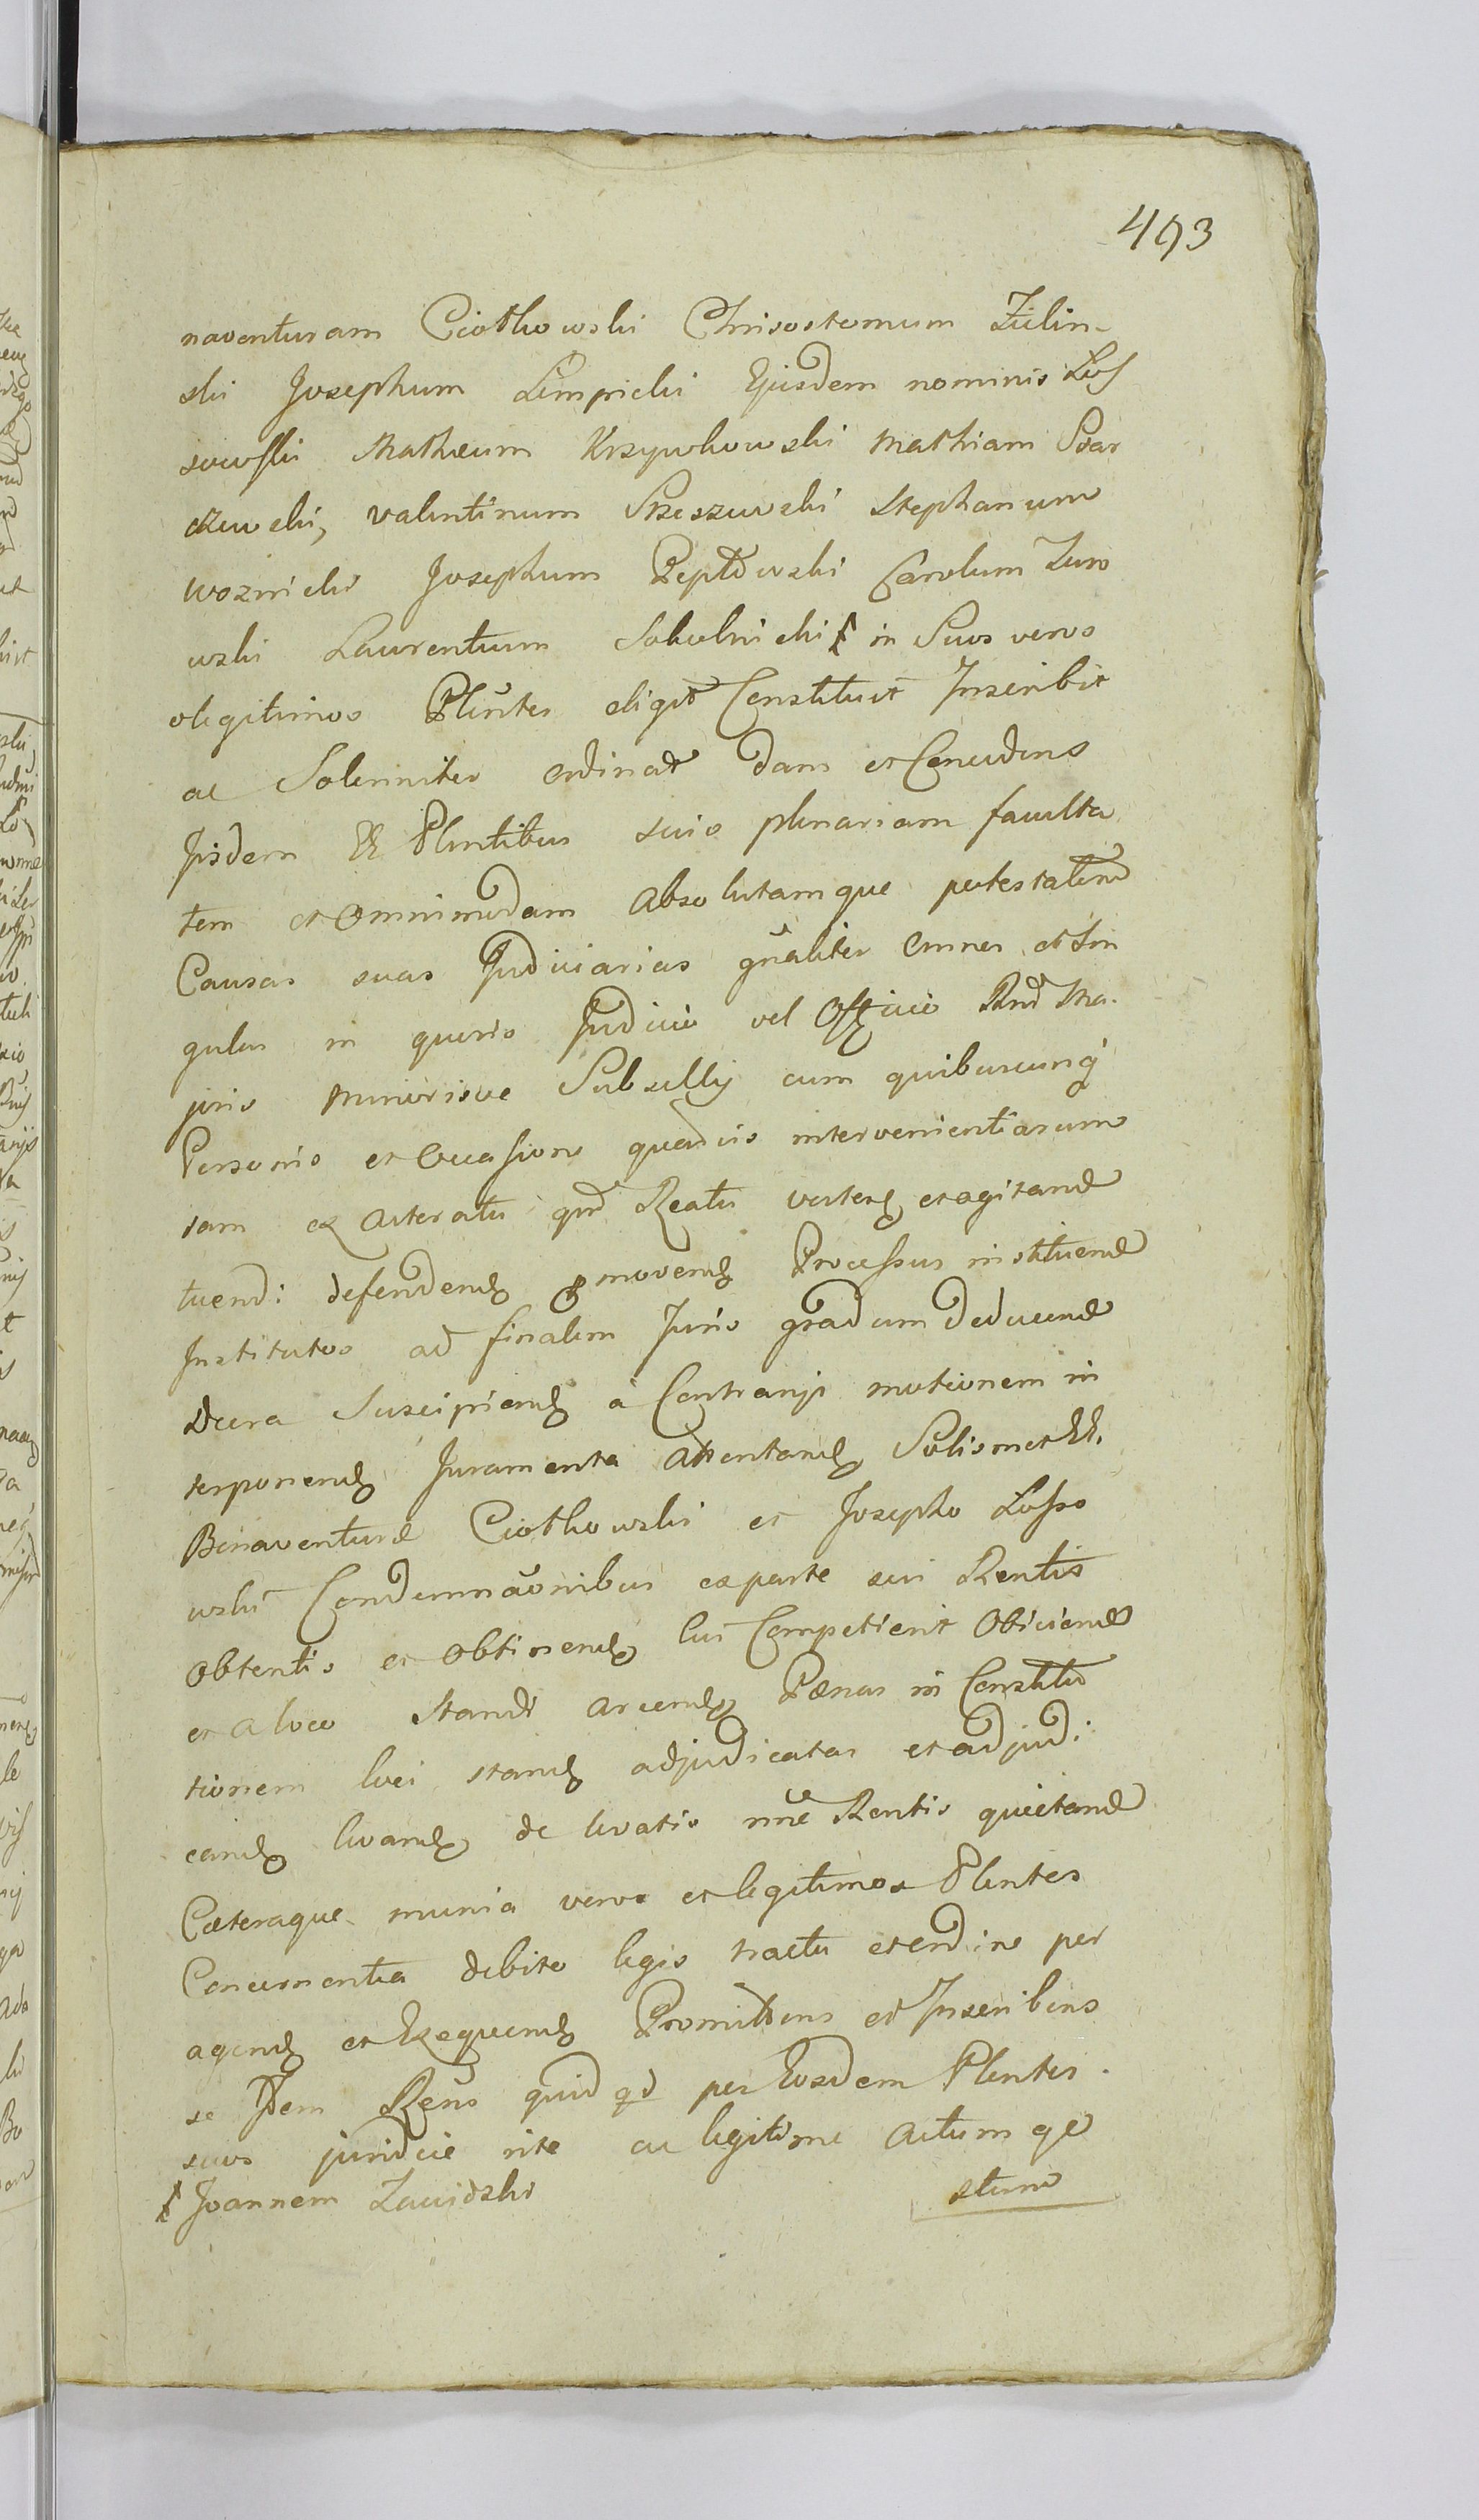 493
naventuram Ciotkowski Chrisostomum Zielin-
ski Josephum Limpicki Ejusdem nominis Los
sowski Mathæum Krzywkowski Mathiam Psar
czewski, Valentinum Strszewski Stephanum
Woznicki Josephum Peptowski Carolum Zuro
wski Laurentium Sokolnicki in Suos veros
olegitimos Plentes eligit Constituit Inscribit
ac Solenniter ordinat dans et Concedens
Iisdem EE Plentibus suis plenariam faculta
tem et Omnimodam absolutamque potestatem
Causas suas Judiciarias gnaliter Omnes et Sin
gulas in quovis Judicio vel Officio Rnd Ma-
joris Minorisve Subsellij cum quibuscunq
Personis et Occasione quavis intervenientiarum
tam ex Actoratu qm Reatu vertend et agitand
tuend: defendend pmovend Processus instituend
Institutos ad finalem Juris gradum deducend
Dcera Suscipiend a Contrarijs motionem in
terponend Juramenta Attentand Solismet EE.
Bonaventuræ Ciotkowski et Josepho Losso
wski Condemnaonibus ex parte sui Rentis
Obtentis et Obtinend Cui Competierit Obiiciend
et a loco Standi arcend Pænas in Constitu
tionem loci stand adjudicatas et adjudi
cand levand de levatis nne Rentis quietand
Cæteraque munia veros et legitimos Plentes
Concernentia debito legis tractu et ordine per
agend et Exequend Promittens et Inscribens
se Idem Rens quidqd per Eosdem Plentes
suos juridice rite ac legitime actum ge
Joannem Zawidzki
stum